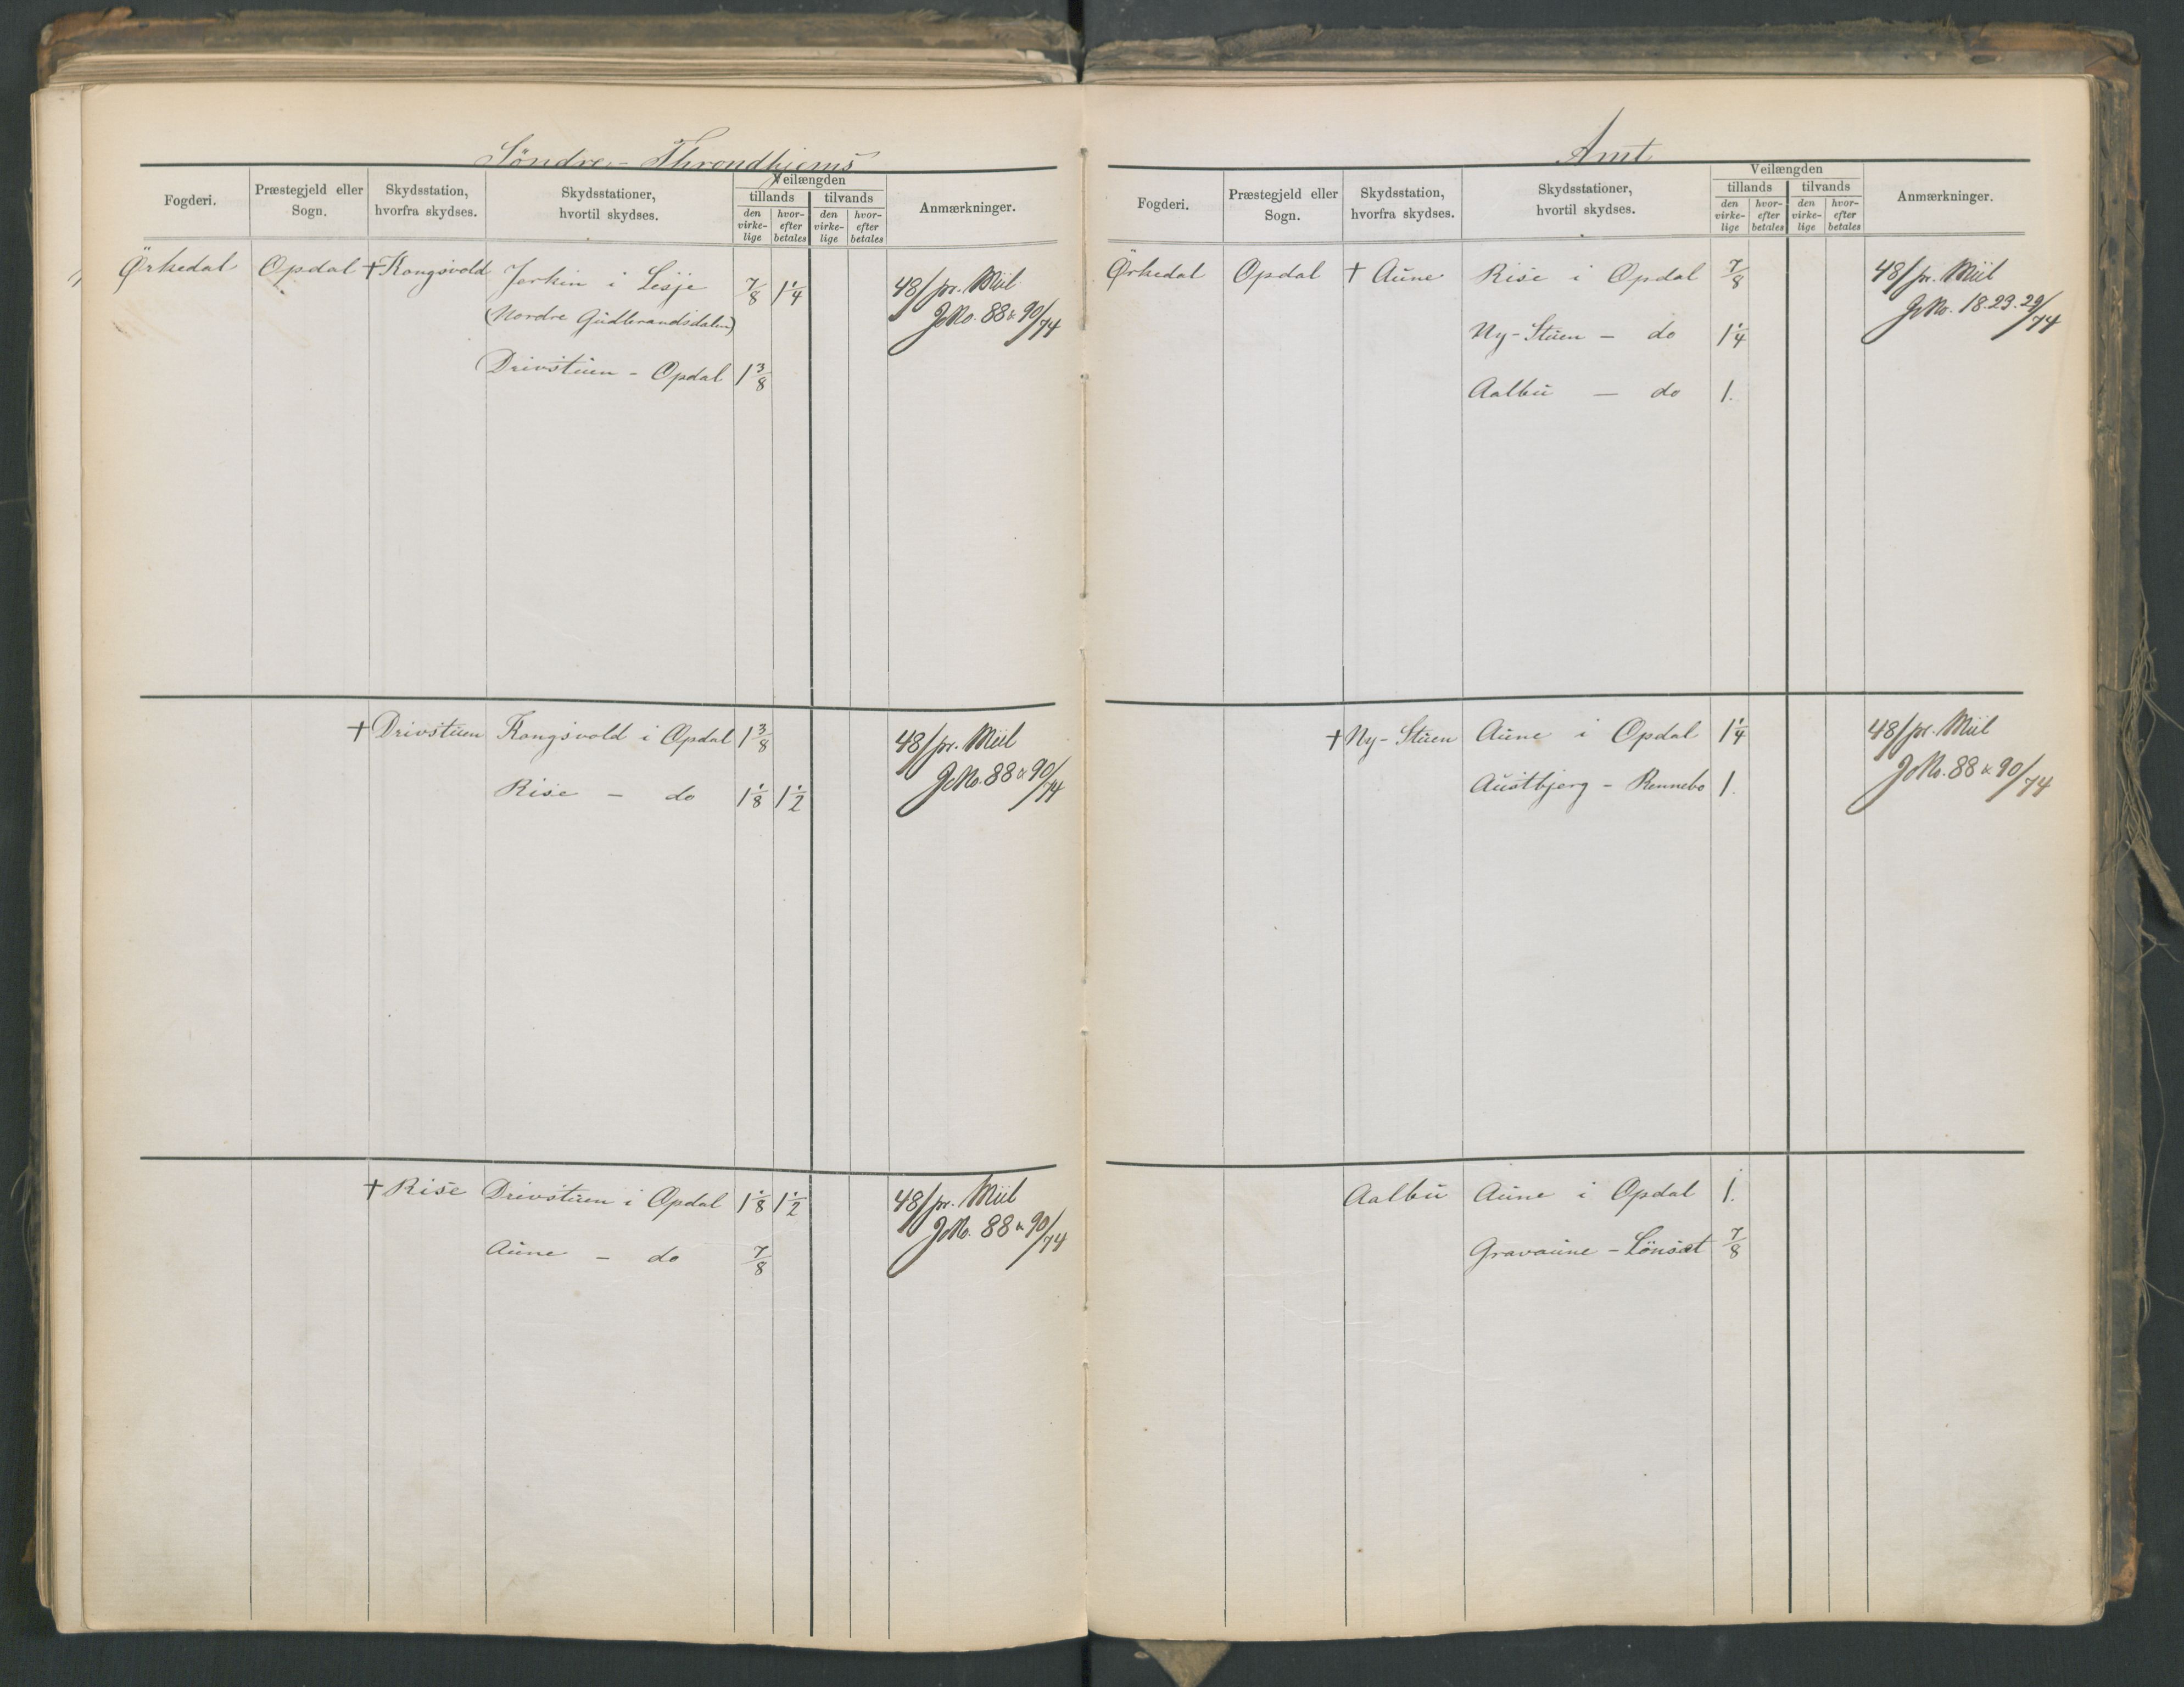 Söndre - Throndhjems
Fogderi. Præstegjeld eller Sogn. Skydsstation, hvorfra skydses. Skydsstationer, hvortil skydses. Veilængden tillands den virkelige hvorefter betales tilvands den virkelige hvorefter betales Anmærkninger.
Örkedal Opdal † Kongsvold Jerkin i Lesje 7/8 1 1/4 48/ pr. Miil
(Nordre Gudbrandsdalen) JoNo. 88 & 90/74
Drivstuen - Opdal 1 3/8
† Drivstuen Kongsvold i Opdal 1 3/8 48/ pr. Miil
JoNo. 88 & 90/74
Rise - do 1 1/8 1 1/2
† Rise Drivstuen i Opdal 1 1/8 1 1/2 48/ pr. Miil
JoNo. 88 & 90/74
Aune - do 7/8
Amt
Fogderi. Præstegjeld eller Sogn. Skydsstation, hvorfra skydses. Skydsstationer, hvortil skydses. Veilængden tillands den virkelige hvorefter betales tilvands den virkelige hvorefter betales Anmærkninger.
Örkedal Opdal † Aune Rise i Opdal 7/8 48/ pr. Miil
JoNo. 18. 23. 29/74
Ny-Stuen - do 1 1/4
Aalbu - do 1.
† Ny-Stuen Aune i Opdal 1 1/4 48/ pr. Miil
JoNo. 88 & 90/74
Austbjerg - Rennebo 1.
Aalbu Aune i Opdal 1.
Gravaune - Lönset 7/8